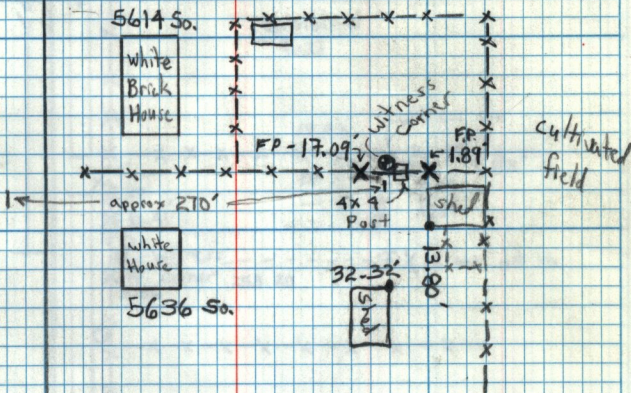 5614 So.
White
Brick
House
Witness
Corner
F.P. - 17.09'
F.P.
1.89'
cultivated
field
approx 270'
4x4
Post
shed
White
House
5636 So.
32.32'
Shed
13.80'